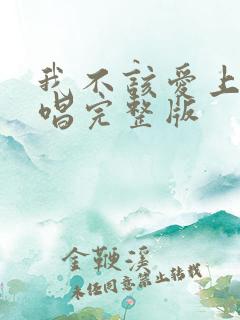 我不该爱上
唱完整版
金鞭溪
未经同意禁止转载